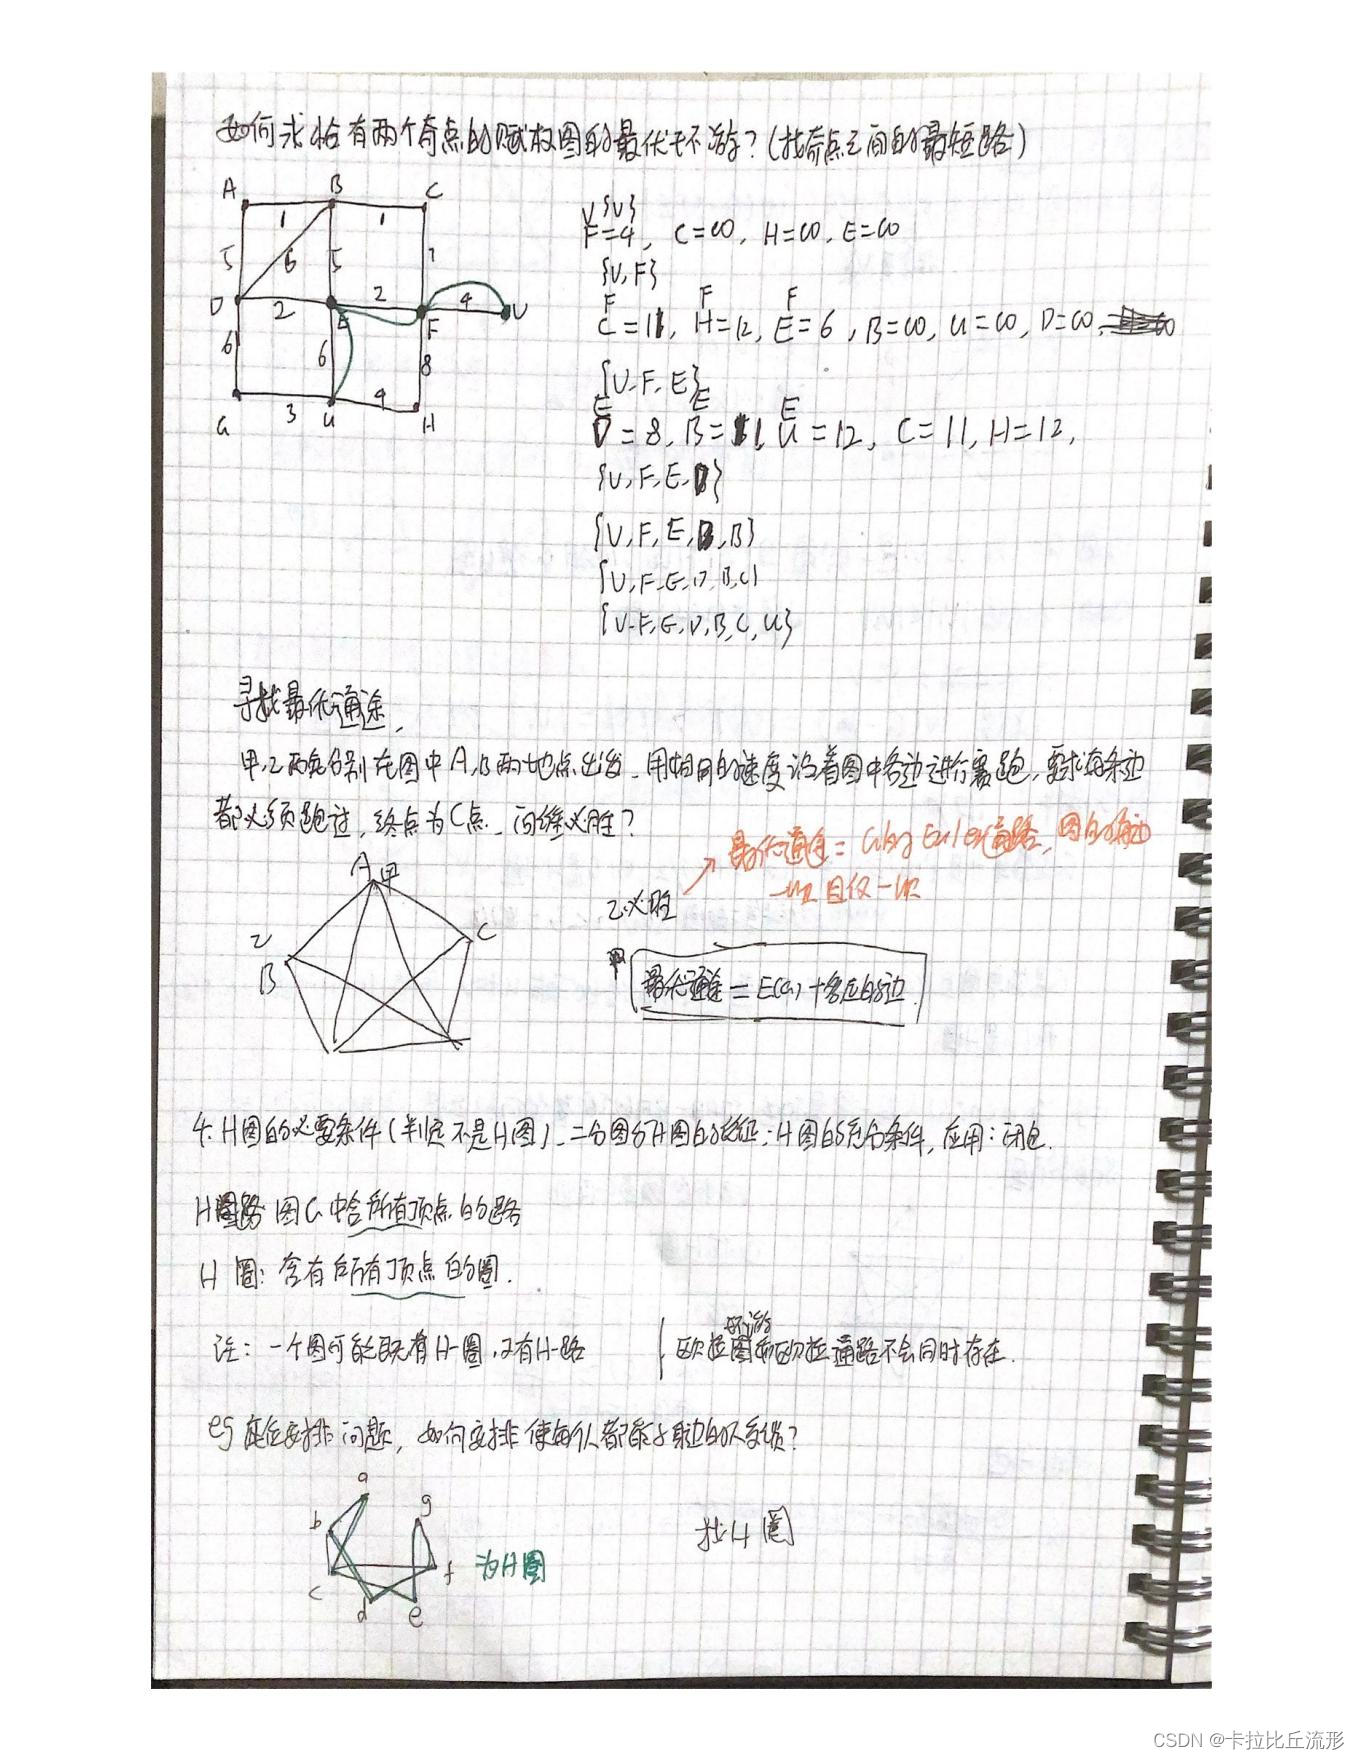 如何求恰有两个奇点的赋权图的最优环游?(找奇点之间的最短路)
A B C
1 1
5 6 5 7
D 2 E 2 F 4 V
6 6 8
G 3 U 4 H
{V}
V
F=4, C=∞, H=∞, E=∞
{V,F}
F F F
C=11, H=12, E=6, B=∞, U=∞, D=∞,
{V,F,E}
E E E
D=8, B=11, U=12, C=11, H=12,
{V,F,E,D}
{V,F,E,D,B}
{V,F,E,D,B,C}
{V,F,E,D,B,C,U}
寻找最优通途,
甲,乙两兔分别在图中A,B两地点出发,用相同的速度沿着图中各边进行赛跑,要求每条边
都必须跑过,终点为C点,问谁必胜?
最优通途=G的Euler通路,图的每边
一次且仅一次
A 甲
乙
B
C
乙必胜
甲
最优通途=E(G)+多应的边
4. H图的必要条件(判定不是H图),二分图分H图的特征;H图的充分条件,应用:闭包.
H路 图G中含所有顶点的路
H圈:含有所有顶点的圈.
注:一个图可能既有H-圈,又有H-路
环游
欧拉图和欧拉通路不会同时存在.
eg 座位安排问题,如何安排使每个人都能与身边的人交谈?
a
b
g
c
f
d
e
为H圈
找H圈
CSDN @卡拉比丘流形